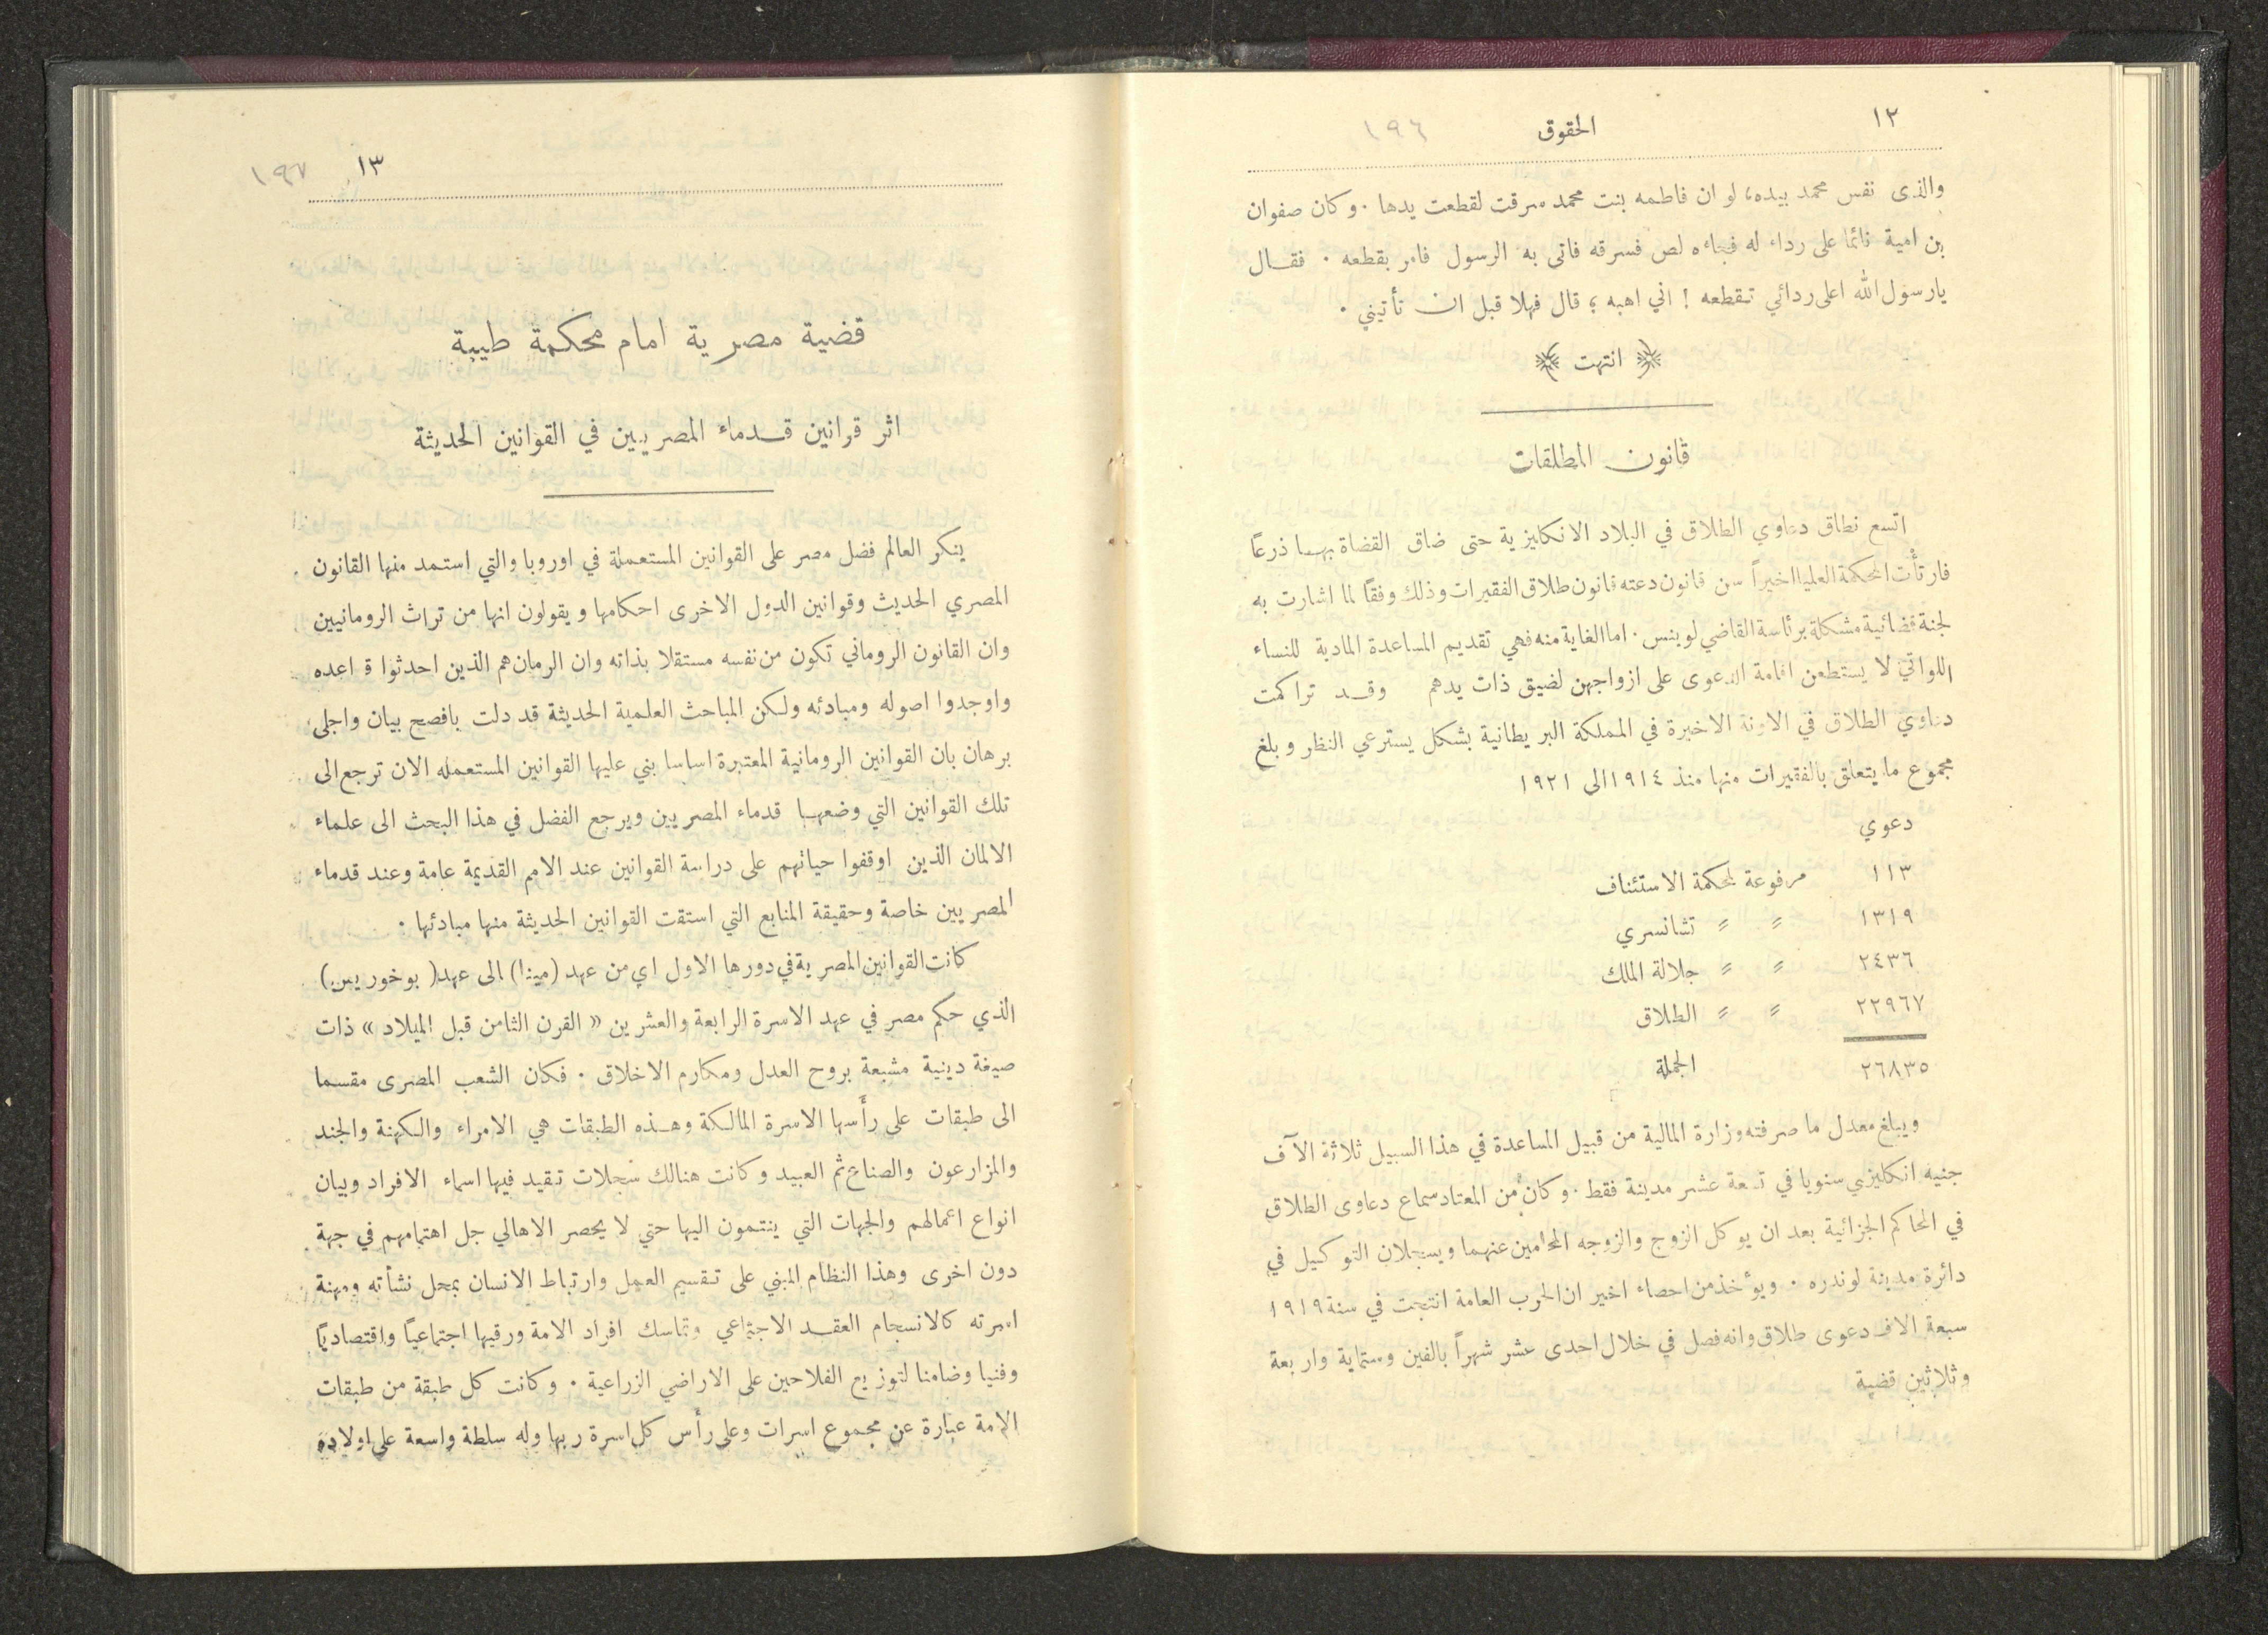 ١٢
الحقوق
١٩٦
والذى نفس محمد بيده، لو ان فاطمه بنت محمد سرقت لقطعت يدها ٠ وكان صفوان
بن امية نائما على رداء له فجاءه لص فسرقه فاتى به الرسول فامر بقطعه ٠ فقال
يارسول الله اعلى ردائي تقطعه ! اني اهبه ؟ قال فهلا قبل ان تأتيني ٠
انتهت
قانون المطلقات
اتسع نطاق دعاوي الطلاق في البلاد الانكليزية حتى ضاق القضاة بهما ذرعاً
فارتأت المحكمة العليا اخيراً سن قانون دعته قانون طلاق الفقيرات وذلك وفقاً لما اشارت به
لجنة قضائية مشكلة برئاسة القاضي لوينس ٠ اما الغاية منه فهي تقديم المساعدة المادية للنساء
اللواتي لا يستطعن اقامة الدعوى على ازواجهن لضيق ذات يدهم وقد تراكمت
دعاوي الطلاق في الاونة الاخيرة في المملكة البريطانية بشكل يسترعي النظر وبلغ
مجموع ما يتعلق بالفقيرات منها منذ ١٩١٤ الى ١٩٢١
دعوي
١١٣ مرفوعة لمحكمة الاستئناف
١٣١٩ " " تشانسري
٢٤٣٦ " " جلالة الملك
٢٢٩٦٧ " " الطلاق
٢٦٨٣٥ الجملة
ويبلغ معدل ما صرفته وزارة المالية من قبيل المساعدة في هذا السبيل ثلاثة الآف
جنيه انكليزي سنويا في تسعة عشر مدينة فقط ٠ وكان من المعتاد سماع دعاوى الطلاق
في المحاكم الجزائية بعد ان يوكل الزوج والزوجه المحامين عنهما ويسجلان التوكيل في
دائرة مدينة لوندره ٠ ويؤخذ من احصاء اخير ان الحرب العامة انتجت في سنة ١٩١٩
سبعة الاف دعوى طلاق وانه فصل في خلال احدى عشر شهراً بالفين وستماية واربعة
وثلاثين قضية
١٣
١٩٧
قضية مصرية امام محكمة طيبة
اثر قوانين قدماء المصريين في القوانين الحديثة
ينكر العالم فضل مصر على القوانين المستعملة في اوروبا والتي استمد منها القانون
المصري الحديث وقوانين الدول الاخرى احكامها ويقولون انها من تراث الرومانيين
وان القانون الروماني تكون من نفسه مستقلا بذاته وان الرمان هم الذين احدثوا قواعده
واوجدوا اصوله ومبادئه ولكن المباحث العلمية الحديثة قد دلت بافصح بيان واجلى
برهان بان القوانين الرومانية المعتبرة اساسا بني عليها القوانين المستعمله الان ترجع الى
تلك القوانين التي وضعها قدماء المصريين ويرجع الفضل في هذا البحث الى علماء
الالمان الذين اوقفوا حياتهم على دراسة القوانين عند الامم القديمة عامة وعند قدماء
المصريين خاصة وحقيقة المنابع التي استقت القوانين الحديثة منها مبادئها ٠
كانت القوانين المصرية في دورها الاول اي من عهد (مينا) الى عهد (بوخوريس)
الذي حكم مصر في عهد الاسرة الرابعة والعشرين « القرن الثامن قبل الميلاد » ذات
صيغة دينية مشبعة بروح العدل ومكارم الاخلاق ٠ فكان الشعب المصرى مقسما
الى طبقات على رأسها الاسرة المالكة وهذه الطبقات هي الامراء والكهنة والجند
والمزارعون والصناع ثم العبيد وكانت هنالك سجلات تقيد فيها اسماء الافراد وبيان
انواع اعمالهم والجهات التي ينتمون اليها حتي لا يحصر الاهالي جل اهتمامهم في جهة
دون اخرى وهذا النظام المبني على تقسيم العمل وارتباط الانسان بمحل نشأته ومهنة
اسرته كالانسجام العقد الاجتماعي وتماسك افراد الامة ورقيها اجتماعياً واقتصادياً
وفنيا وضامنا لتوزيع الفلاحين على الاراضي الزراعية ٠ وكانت كل طبقة من طبقات
الامة عبارة عن مجموع اسرات وعلى رأس كل اسرة ربها وله سلطة واسعة على اولاده